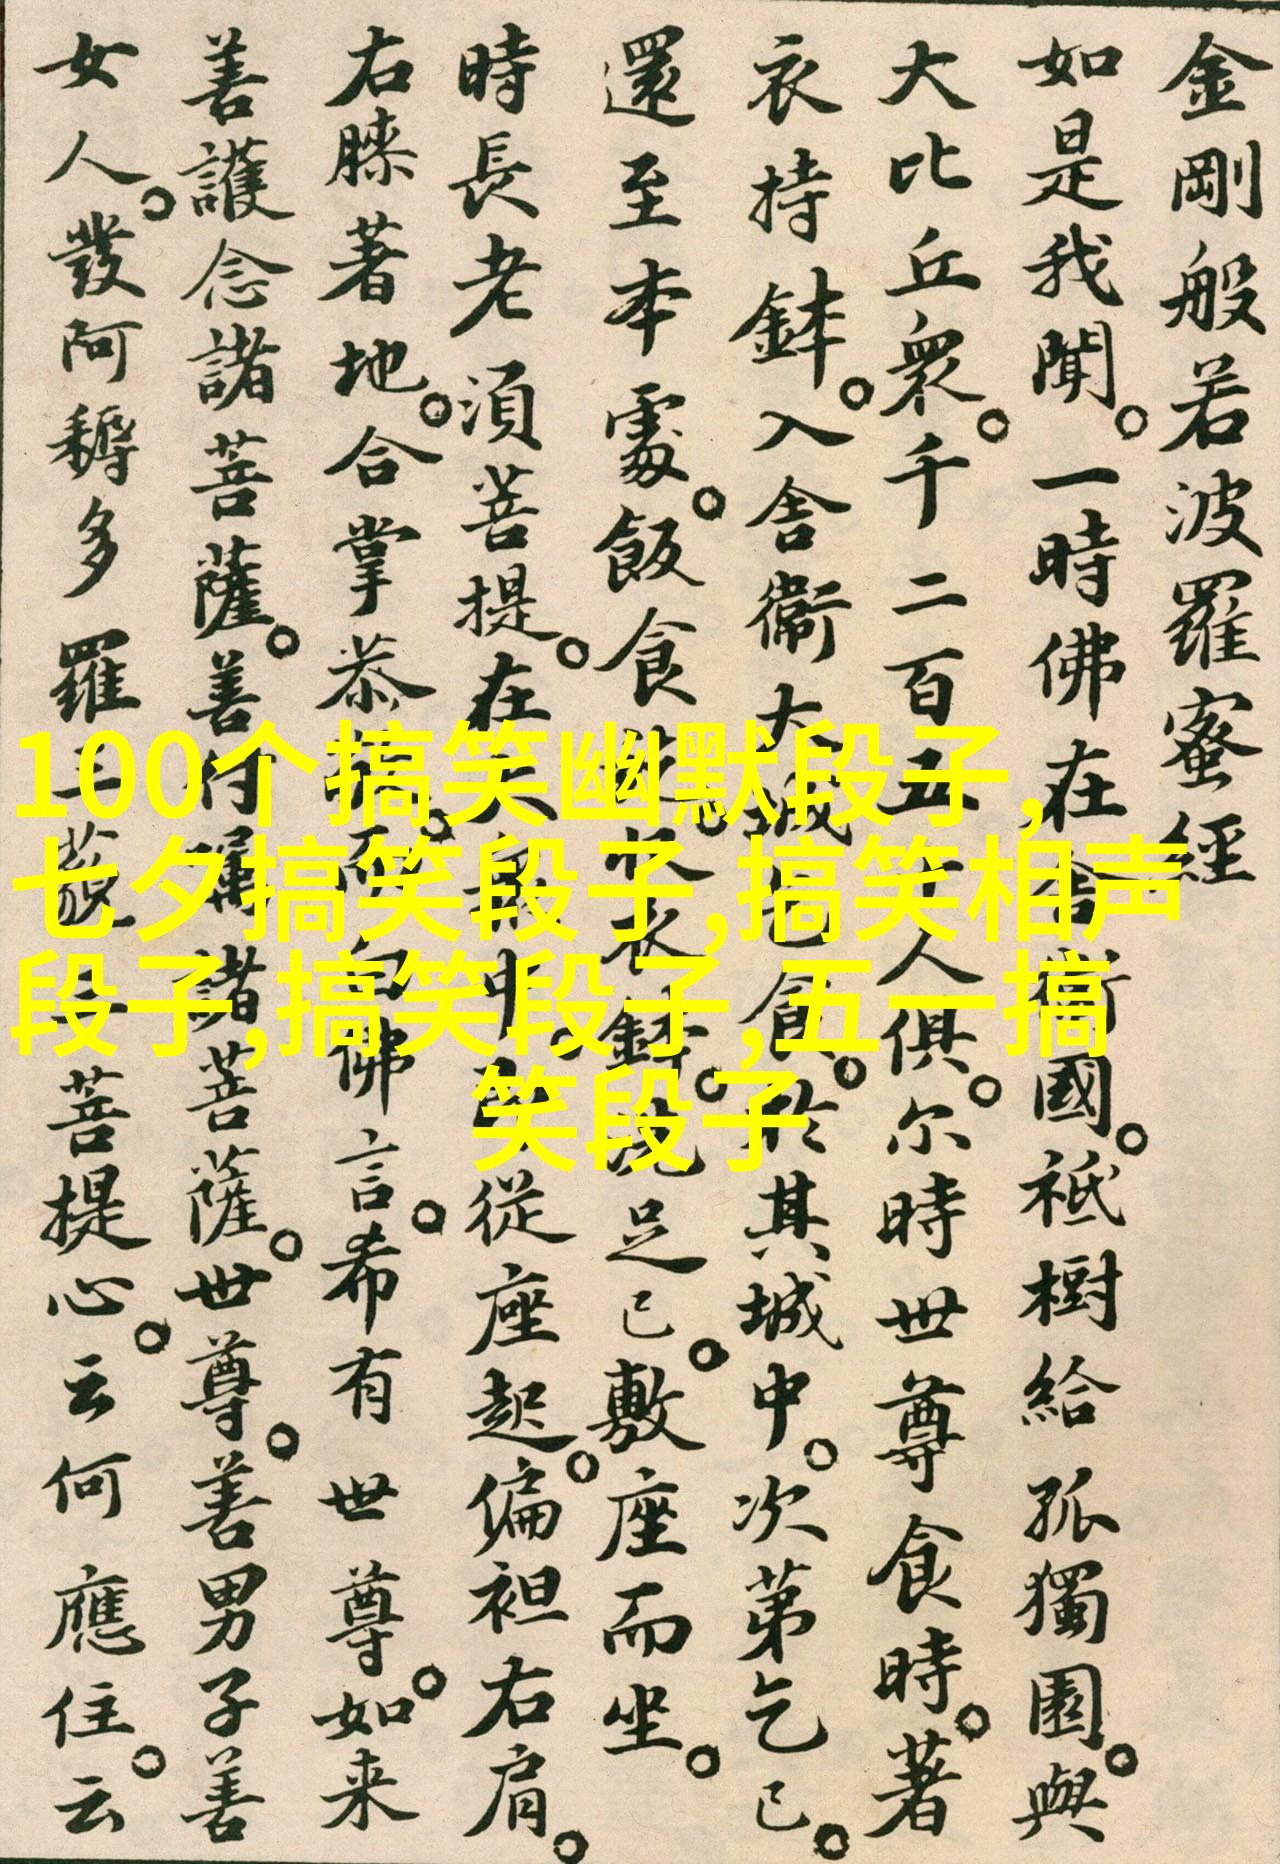 金剛般若波羅蜜經
如是我聞。一時佛在舍衛國。祇樹給孤獨園。與
大比丘衆。千二百五十人俱。尔時世尊食時。著
衣持鉢。入舍衛大城乞食。於其城中。次第乞已。
還至本處。飯食訖。收衣鉢。洗足已。敷座而坐。
時長老湏菩提。在大衆中。即從座起。偏袒右肩。
右膝著地。合掌恭敬。而白佛言。希有世尊。如来
善護念諸菩薩。善付囑諸菩薩。世尊。善男子善
女人。發阿耨多羅三藐三菩提心。云何應住。云
100个搞笑幽默段子,
七夕搞笑段子,搞笑相声
段子,搞笑段子,五一搞
笑段子